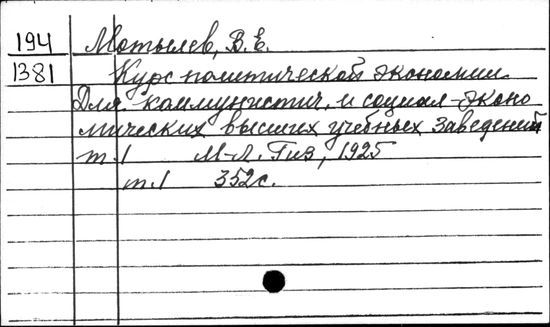 194 Мотылев, В.Е.
1381 Курс политической экономии.
Для коммунистич. и социал-эконо
мических высших учебных заведений
т.1 М-Л. Гиз, 1925
т.1 352с.